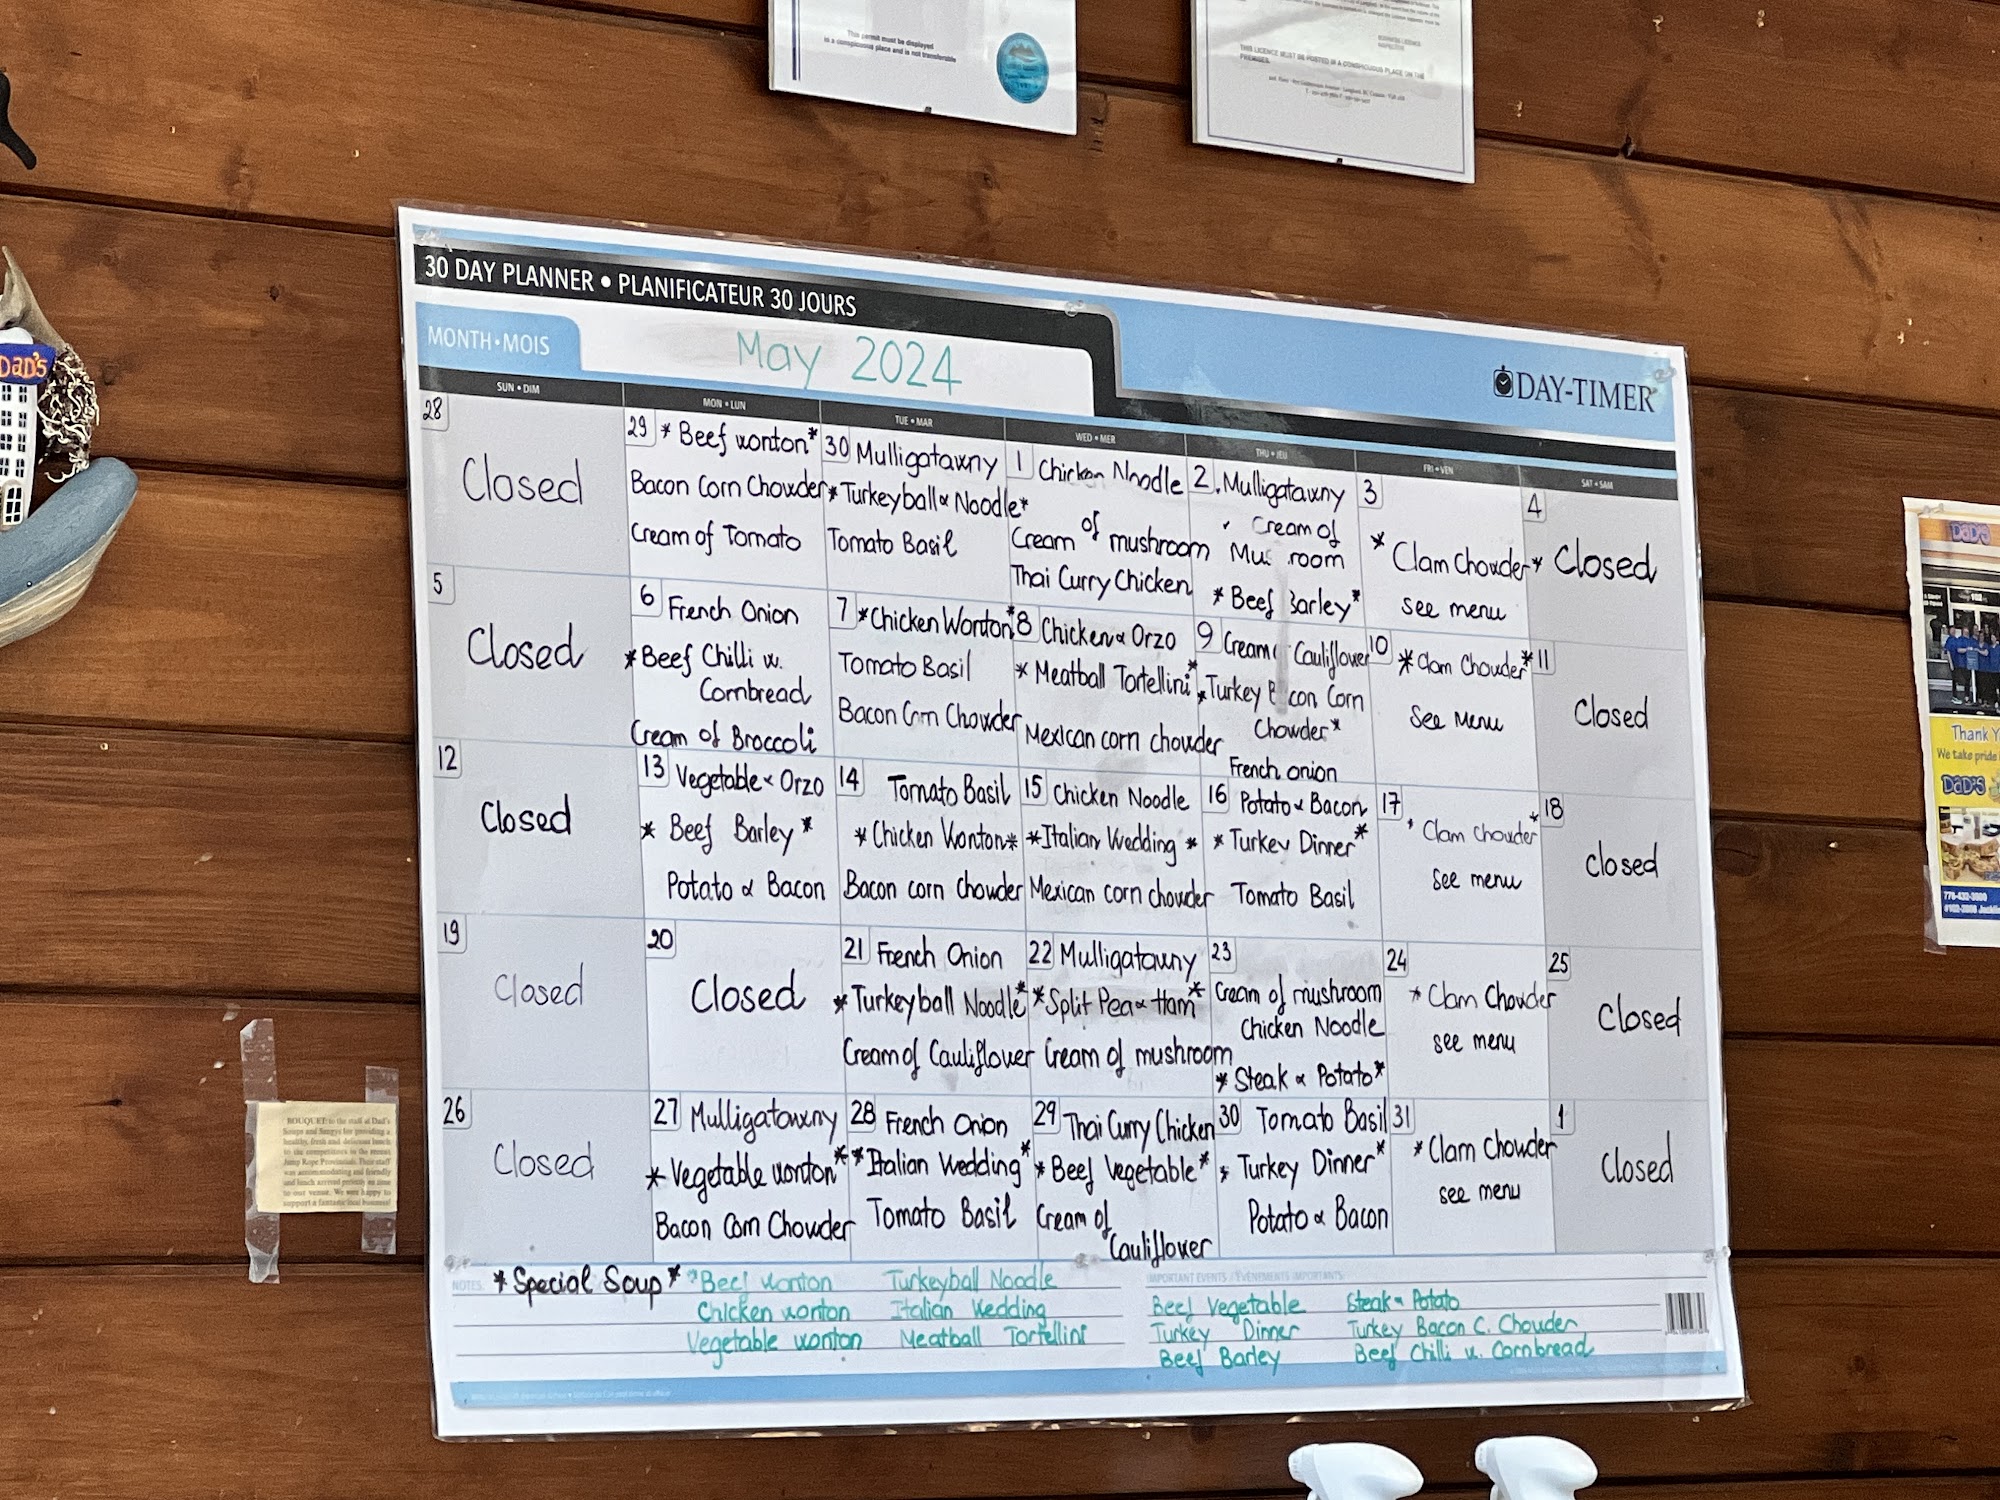 This permit must be displayed
in a conspicuous place and is not transferable
THIS LICENCE MUST BE POSTED IN A CONSPICUOUS PLACE ON THE
PREMISES.
30 DAY PLANNER • PLANIFICATEUR 30 JOURS
MONTH • MOIS
May 2024
DAY-TIMER
SUN • DIM
MON • LUN
TUE • MAR
WED • MER
THU • JEU
FRI • VEN
SAT • SAM
28
Closed
29 *Beef wonton*
Bacon Corn Chowder
Cream of Tomato
30 Mulligatawny
*Turkeyball & Noodle*
Tomato Basil
1 Chicken Noodle
Cream of mushroom
Thai Curry Chicken
2 Mulligatawny
Cream of
room
*Beef Barley*
3
*Clam Chowder*
see menu
4
Closed
5
Closed
6 French Onion
*Beef Chilli w.
Cornbread
Cream of Broccoli
7 *Chicken Wonton*
Tomato Basil
Bacon Corn Chowder
8 Chicken & Orzo
*Meatball Tortellini*
Mexican corn chowder
9 Cream Cauliflower
*Turkey Bacon Corn
Chowder*
French onion
10 *Clam Chowder*
See Menu
11
Closed
12
Closed
13 Vegetable & Orzo
*Beef Barley*
Potato & Bacon
14 Tomato Basil
*Chicken Wonton*
Bacon corn chowder
15 Chicken Noodle
*Italian Wedding*
Mexican corn chowder
16 Potato & Bacon
*Turkey Dinner*
Tomato Basil
17
*Clam Chowder*
see menu
18
Closed
19
Closed
20
Closed
21 French Onion
*Turkeyball Noodle*
Cream of Cauliflower
22 Mulligatawny
*Split Pea & Ham*
Cream of mushroom
23
Cream of mushroom
Chicken Noodle
*Steak & Potato*
24
*Clam Chowder
see menu
25
Closed
26
Closed
27 Mulligatawny
*Vegetable wonton*
Bacon Corn Chowder
28 French Onion
*Italian Wedding*
Tomato Basil
29 Thai Curry Chicken
*Beef Vegetable*
Cream of
Cauliflower
30 Tomato Basil
*Turkey Dinner*
Potato & Bacon
31
*Clam Chowder
see menu
1
Closed
NOTES:
*Special Soup* *Beef wonton Turkeyball Noodle
Chicken wonton Italian Wedding
Vegetable wonton Meatball Tortellini
IMPORTANT EVENTS / ÉVÉNEMENTS IMPORTANTS:
Beef Vegetable Steak & Potato
Turkey Dinner Turkey Bacon C. Chowder
Beef Barley Beef Chilli w. Cornbread
DaD'S
BOUQUET to the staff at Dad's
Soups and for providing a
healthy, fresh and delicious lunch
to the competitors in the recent
Jump Rope Provincials. Their staff
was accommodating and friendly
and lunch arrived on time
to our venue. We were happy to
support a fantastic local business!
DaD'S
Thank Y
We take pride
DaD'S